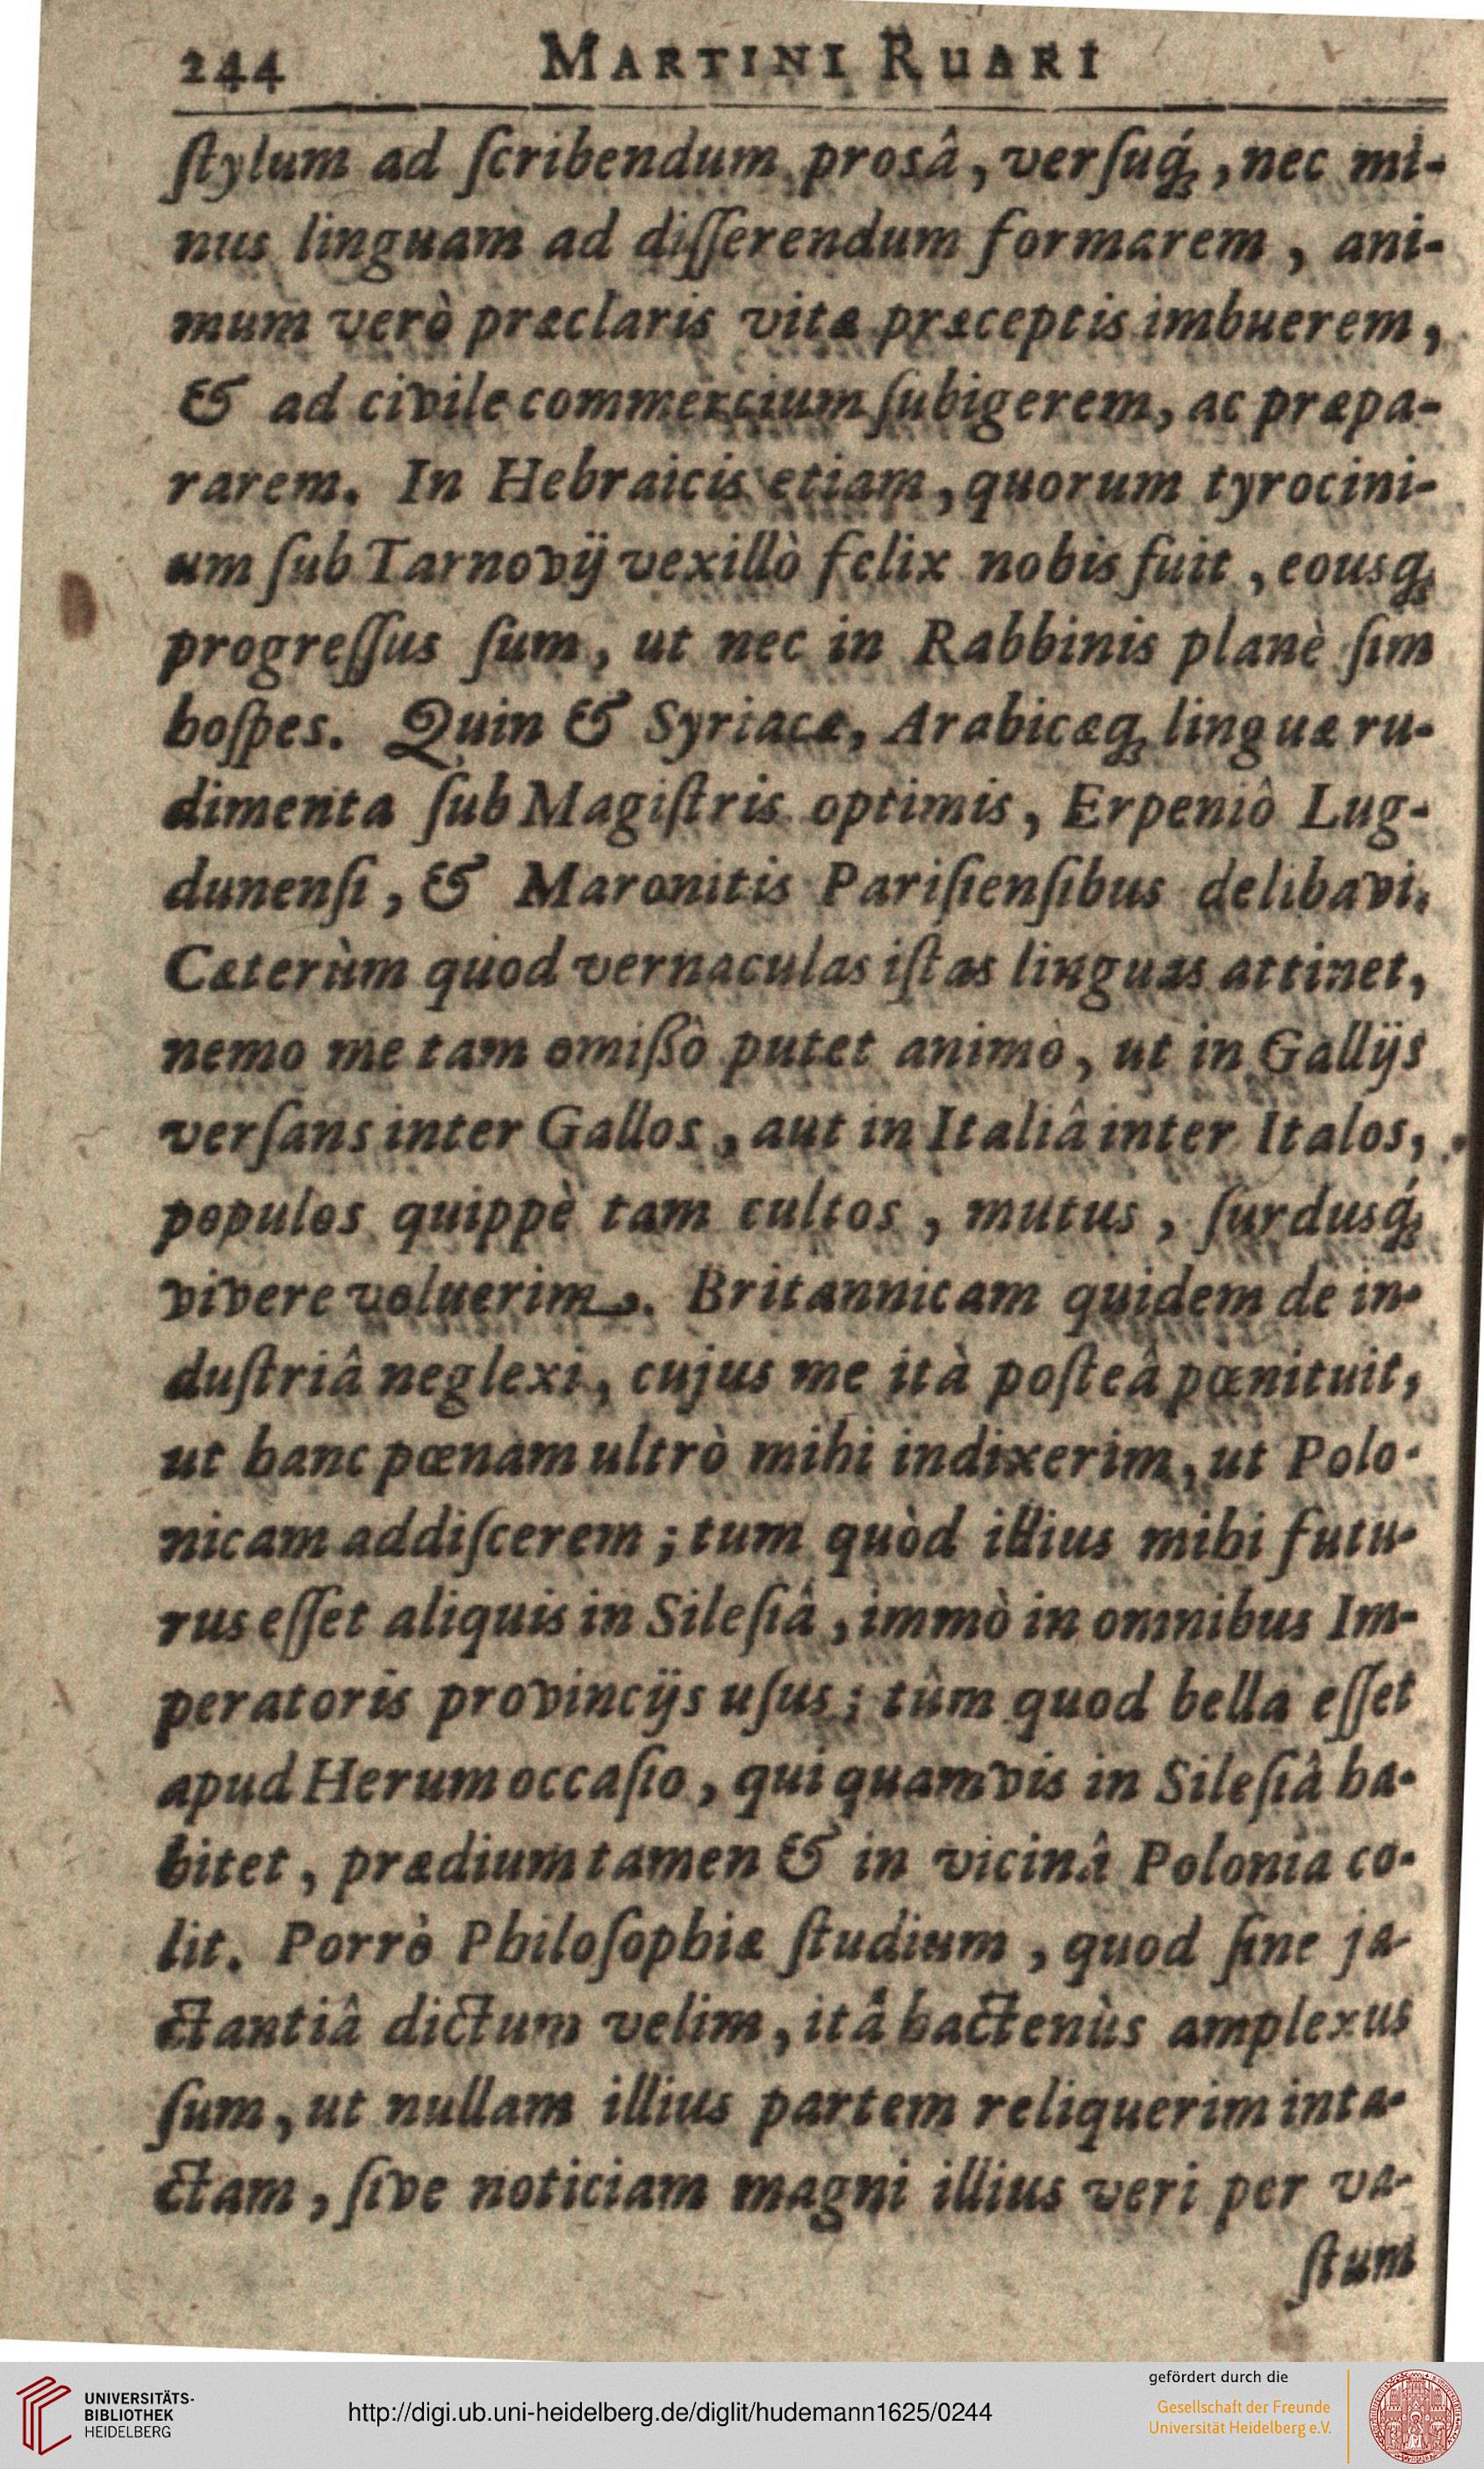 244 MARTINI RUARI
ſtylum ad ſcribendum prosâ, verſuq́ꝫ, nec mi-
nus linguam ad diſſerendum formarem, ani-
mum verò præclaris vitæ præceptis imbuerem,
& ad civile commercium ſubigerem, ac præpa-
rarem. In Hebraicis etiam, quorum tyrocini-
um ſub Tarnovij vexillò felix nobis fuit, eousqꝫ
progreſſus ſum, ut nec in Rabbinis planè ſim
hoſpes. Quin & Syriacæ, Arabicæqꝫ linguæ ru-
dimenta ſub Magiſtris optimis, Erpeniô Lug-
dunenſi, & Maronitis Pariſienſibus delibavi.
Cæterùm quod vernaculas iſtas linguas attinet,
nemo me tam omißò putet animò, ut in Gallijs
verſans inter Gallos, aut in Italiâ inter Italos,
populos quippè tam cultos, mutus, ſurdusq́ꝫ
vivere voluerim. Britannicam quidem de in-
duſtriâ neglexi, cujus me ità poſteâ pœnituit,
ut hanc pœnam ultrò mihi indixerim, ut Polo-
nicam addiſcerem; tum quòd illius mihi futu-
rus eſſet aliquis in Sileſiâ, immò in omnibus Im-
peratoris provincijs uſus; tûm quod bella eſſet
apud Herum occaſio, qui quamvis in Sileſiâ ha-
bitet, prædium tamen & in vicinâ Polonia co-
lit. Porrò Philoſophiæ ſtudium, quod ſine ja-
ctantiâ dictum velim, itâ hactenùs amplexus
ſum, ut nullam illius partem reliquerim inta-
ctam, ſive noticiam magni illius veri per va-
ſtum
UNIVERSITÄTS-
BIBLIOTHEK
HEIDELBERG
http://digi.ub.uni-heidelberg.de/diglit/hudemann1625/0244
gefördert durch die
Gesellschaft der Freunde
Universität Heidelberg e.V.